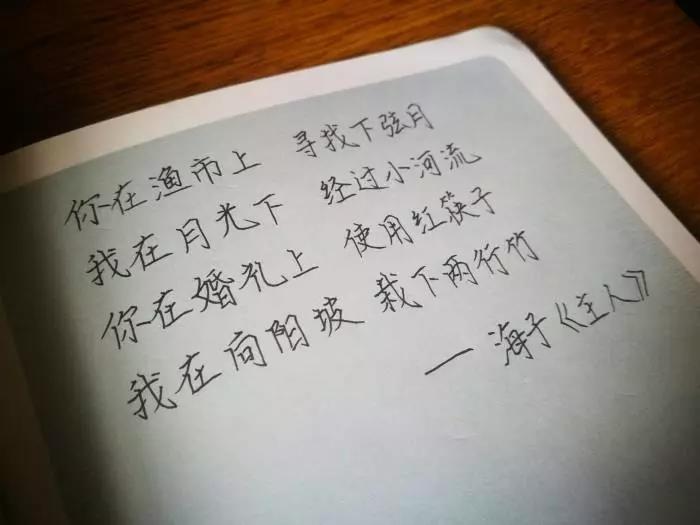 你在渔市上 寻找下弦月
我在月光下 经过小河流
你在婚礼上 使用红筷子
我在向阳坡 栽下两行竹
— 海子《主人》